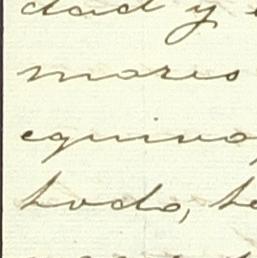 dad y
mores
equivo
todo, he